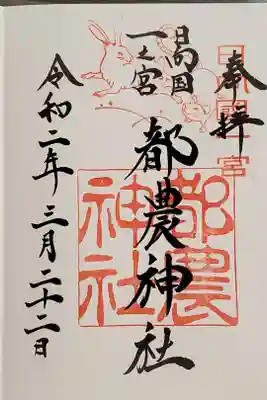 奉拝
日向国
一之宮
都農神社
令和二年三月二十二日
都農
神社